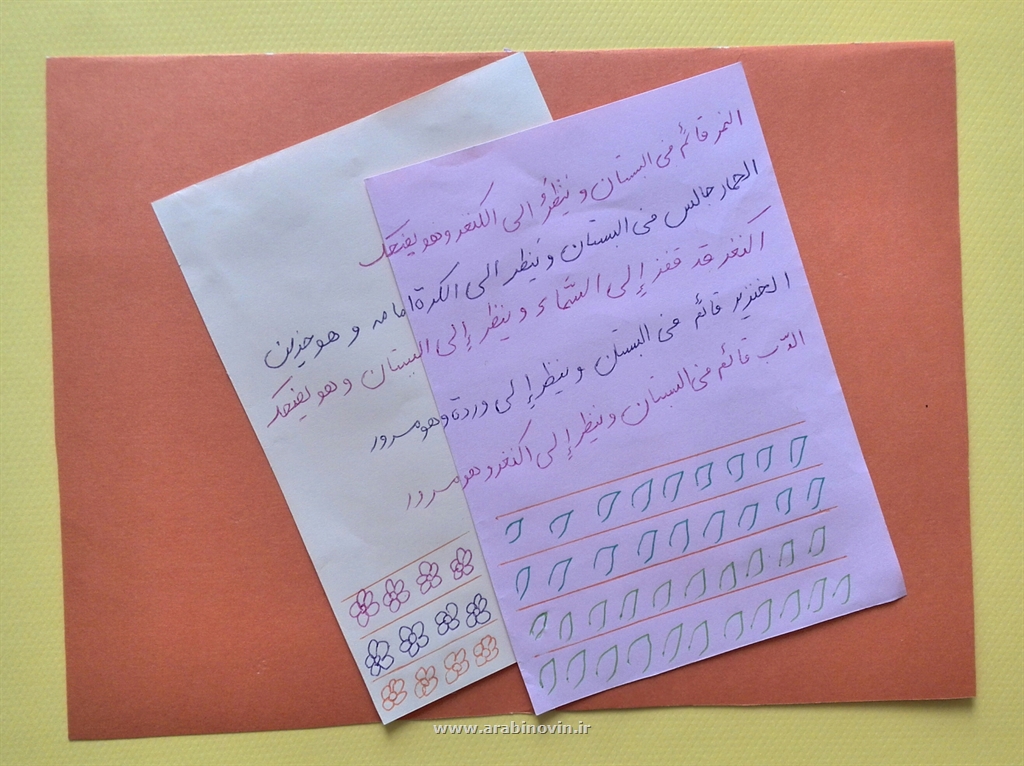 النمر قائم في البستان و ينظرُ الى الكنغر وهو يضحك
الحمار جالس في البستان و ينظر الى الكرة امامه و هو حزين
اكنغر قد قفز إلى السَّماء و ينظر إلى البستان و هو يضحك
الخنزير قائم في البستان و ينظر إلى وردة وهو مسرور
الدّب قائم في البستان و ينظر إلى اكنغر و هو مسرور
www.arabinovin.ir